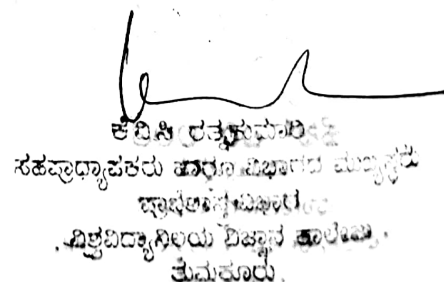 ಕೆ ವಿ ಸಿ ರತ್ನಕುಮಾರಿ
ಸಹಪ್ರಾಧ್ಯಾಪಕರು ಹಾಗೂ ವಿಭಾಗದ ಮುಖ್ಯಸ್ಥರು
ವಿಭಾಗ
ವಿಶ್ವವಿದ್ಯಾನಿಲಯ ವಿಜ್ಞಾನ ಕಾಲೇಜು,
ತುಮಕೂರು.